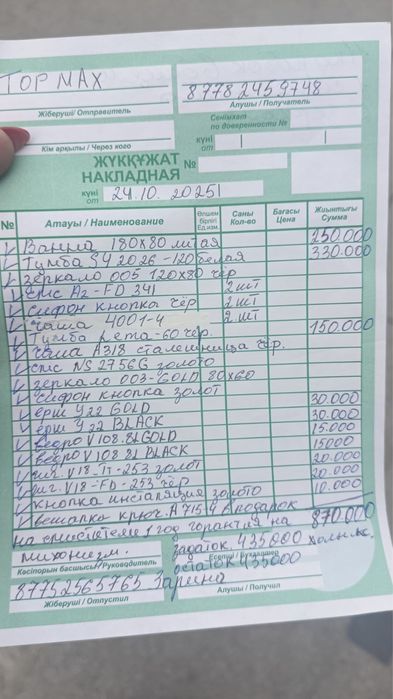 TOPMAX
87782459748
Жіберуші / Отправитель
Алушы / Получатель
Сенімхат
по доверенности №
Кім арқылы / Через кого
күні
от
ЖҮКҚҰЖАТ
НАКЛАДНАЯ №
күні
от 24.10.2025
№ Атауы / Наименование Өлшем бірлігі Ед.изм. Саны Кол-во Бағасы Цена Жиынтығы Сумма
Ванна 180х80 литая 250.000
Тумба SY 2026-120 белая 330.000
зеркало 005 120х80 чёр
смс A2-FD 341 2 шт
сифон кнопка чёр 2 шт
чаша 4001-4 2 шт
Тумба Рета-60 чёр. 150.000
чаша A318 столешница чёр.
смс NS 2756G золото
зеркало 003-GOLD 80х60
сифон кнопка золот
ёрш У22 GOLD 30.000
ёрш У22 BLACK 30.000
ведро V108.8L GOLD 15.000
ведро V108 8L BLACK 15000
гиг. V18-JT-253 золот 20.000
гиг. V18-FD-253 чёр 20.000
кнопка инсталяция золото 10.000
вешалка крюч. A715 4 подарок
на смесители 1 год гарантия на 870.000
механизм. задаток. 435000
остаток 435000
Кәсіпорын басшысы / Руководитель
87752565765 Зарина
Жіберуші / Отпустил
Алушы / Получил